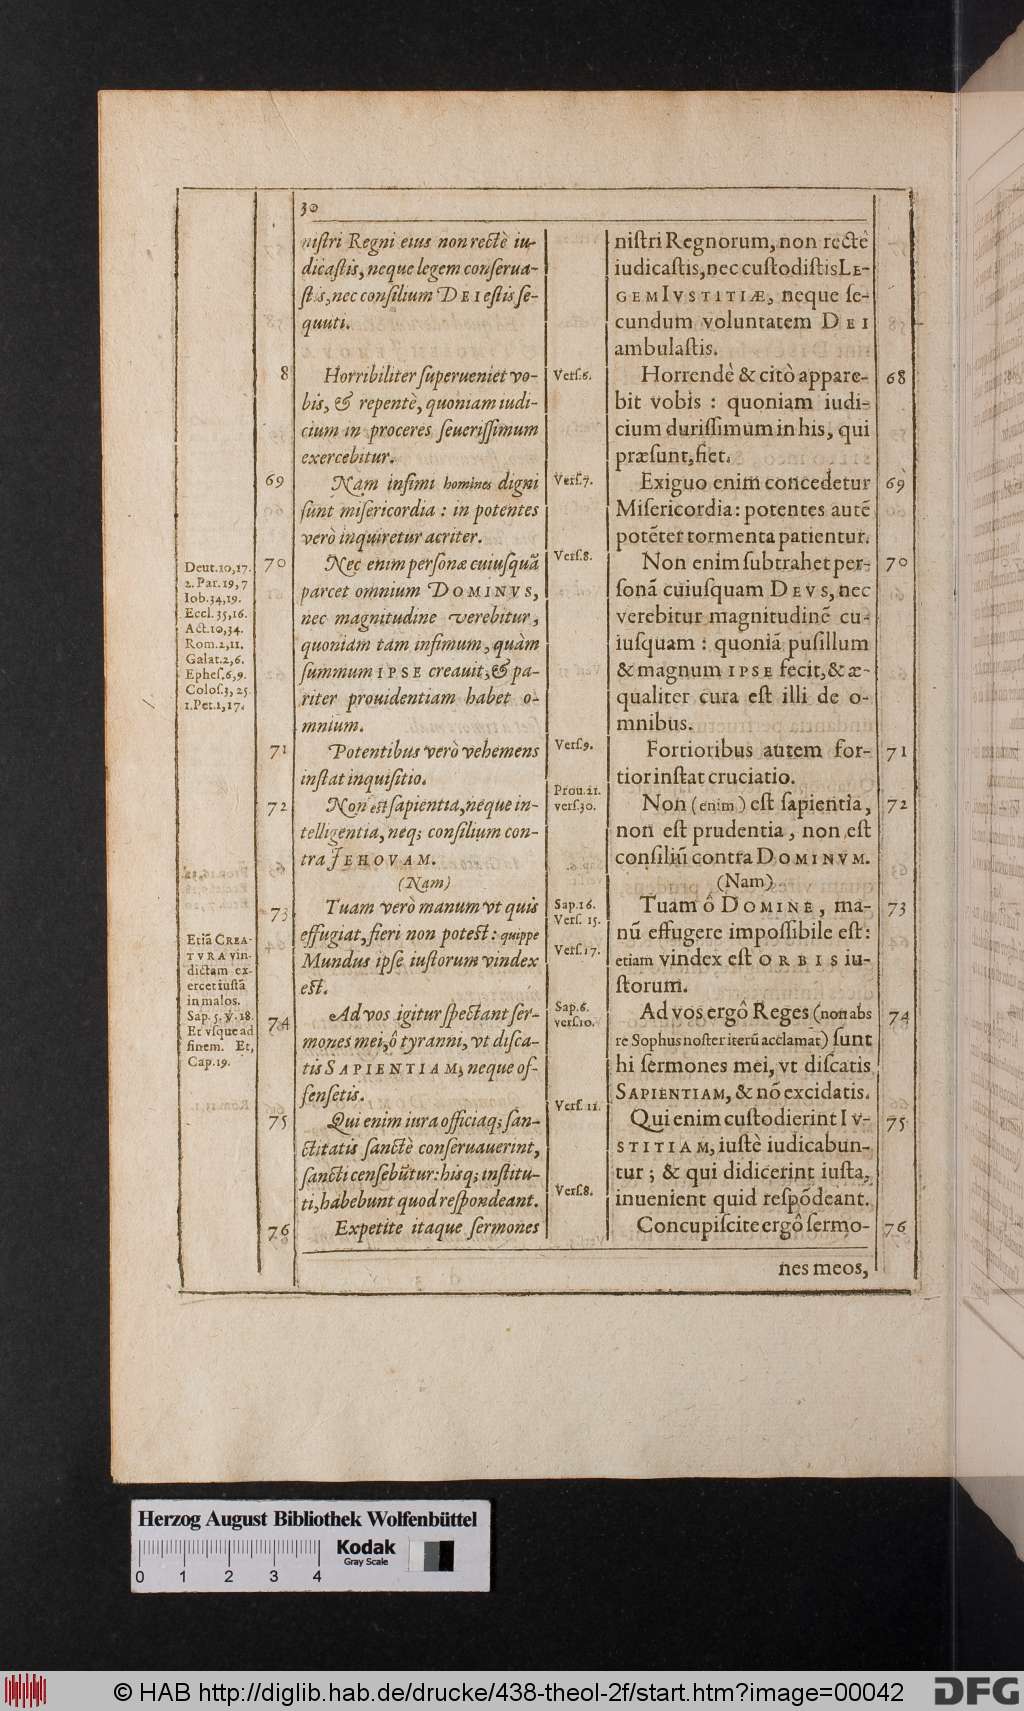 30
nistri Regni eius non rectè iu-
dicastis, neque legem conserua-
stis, nec consilium DEI estis se-
quuti.
8
Horribiliter superueniet vo-
bis, & repentè, quoniam iudi-
cium in proceres seuerissimum
exercebitur.
69
Nam infimi homines digni
sunt misericordia : in potentes
verò inquiretur acriter.
70
Nec enim personæ cuiusquã
parcet omnium DOMINVS,
nec magnitudine verebitur,
quoniam tam infimum, quàm
summum IPSE creauit, & pa-
riter prouidentiam habet o-
mnium.
71
Potentibus verò vehemens
instat inquisitio.
72
Non est sapientia, neque in-
telligentia, neq; consilium con-
tra JEHOVAM.
(Nam)
73
Tuam verò manum vt quis
effugiat, fieri non potest: quippe
Mundus ipse iustorum vindex
est.
74
Ad vos igitur spectant ser-
mones mei, ô tyranni, vt disca-
tis SAPIENTIAM, neque of-
fensetis.
75
Qui enim iura officiaq; san-
ctitatis sanctè conseruauerint,
sancti censebũtur: hisq; institu-
ti, habebunt quod respondeant.
76
Expetite itaque sermones
Deut.10,17.
2. Par.19,7
Iob.34,19.
Eccl.35,16.
Act.10,34.
Rom.2,11.
Galat.2,6.
Ephes.6,9.
Colos.3, 25.
1.Pet.1,17.
Etiã CREA-
TVRA vin-
dictam ex-
ercet iustã
in malos.
Sap. 5. ꝟ.18.
Et vsque ad
finem. Et,
Cap.19.
Vers.6.
Vers.7.
Vers.8.
Vers.9.
Prou.21.
vers.30.
Sap.16.
Vers. 15.
Vers.17.
Sap.6.
vers.10.
Vers. 11.
Vers.8.
nistri Regnorum, non rectè
iudicastis, nec custodistis LE-
GEM IVSTITIÆ, neque se-
cundum voluntatem DEI
ambulastis.
Horrendè & citò appare-
68
bit vobis : quoniam iudi-
cium durissimum in his, qui
præsunt, fiet.
Exiguo enim concedetur
69
Misericordia: potentes autẽ
potẽter tormenta patientur.
Non enim subtrahet per-
70
sonã cuiusquam DEVS, nec
verebitur magnitudinẽ cu-
iusquam : quoniã pusillum
& magnum IPSE fecit, & æ-
qualiter cura est illi de o-
mnibus.
Fortioribus autem for-
71
tior instat cruciatio.
Non (enim) est sapientia,
72
non est prudentia, non est
consiliũ contra DOMINVM.
(Nam)
Tuam ô DOMINE, ma-
73
nũ effugere impossibile est:
etiam vindex est ORBIS iu-
storum.
Ad vos ergô Reges (non abs
74
re Sophus noster iterũ acclamat) sunt
hi sermones mei, vt discatis
SAPIENTIAM, & nõ excidatis.
Qui enim custodierint IV-
75
STITIAM, iustè iudicabun-
tur ; & qui didicerint iusta,
inuenient quid respõdeant.
Concupiscite ergô sermo-
76
nes meos,
Herzog August Bibliothek Wolfenbüttel
Kodak
Gray Scale
0 1 2 3 4
© HAB http://diglib.hab.de/drucke/438-theol-2f/start.htm?image=00042
DFG